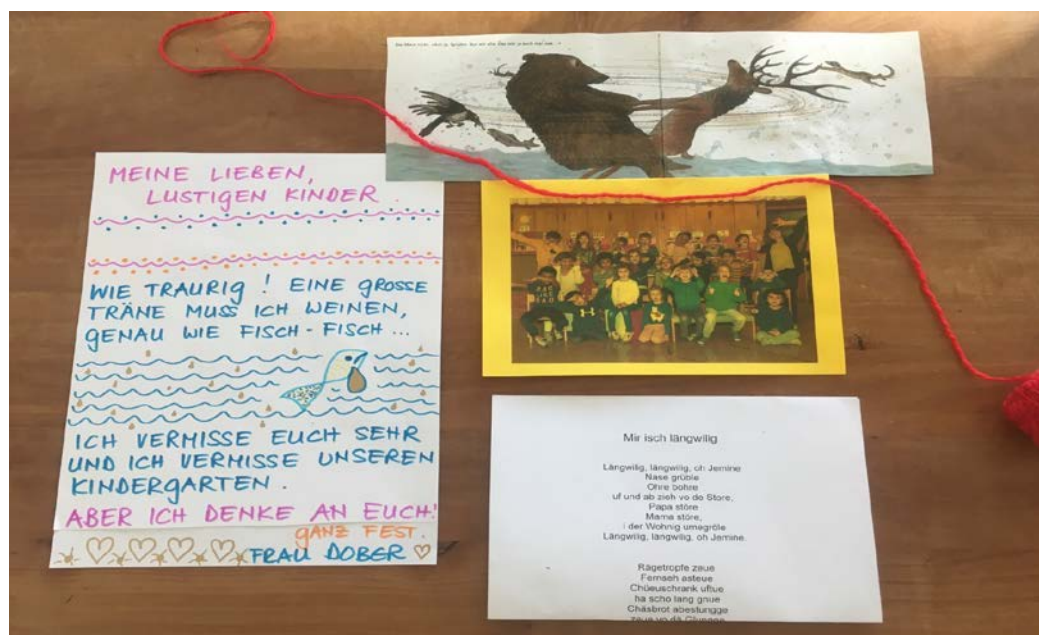 MEINE LIEBEN,
LUSTIGEN KINDER.
WIE TRAURIG! EINE GROSSE
TRÄNE MUSS ICH WEINEN,
GENAU WIE FISCH-FISCH...
ICH VERMISSE EUCH SEHR
UND ICH VERMISSE UNSEREN
KINDERGARTEN.
ABER ICH DENKE AN EUCH!
GANZ FEST.
FRAU DOBER
Mir isch längwilig
Längwilig, längwilig, oh Jemine
Nase grüble
Ohre bohre
uf und ab zieh vo de Store,
Papa störe
Mama störe,
i der Wohnig umegröle
Längwilig, längwilig, oh Jemine.
Rägetropfe zeue
Fernseh asteue
Chüeuschrank uftue
ha scho lang gnue
Chäsbrot abestungge